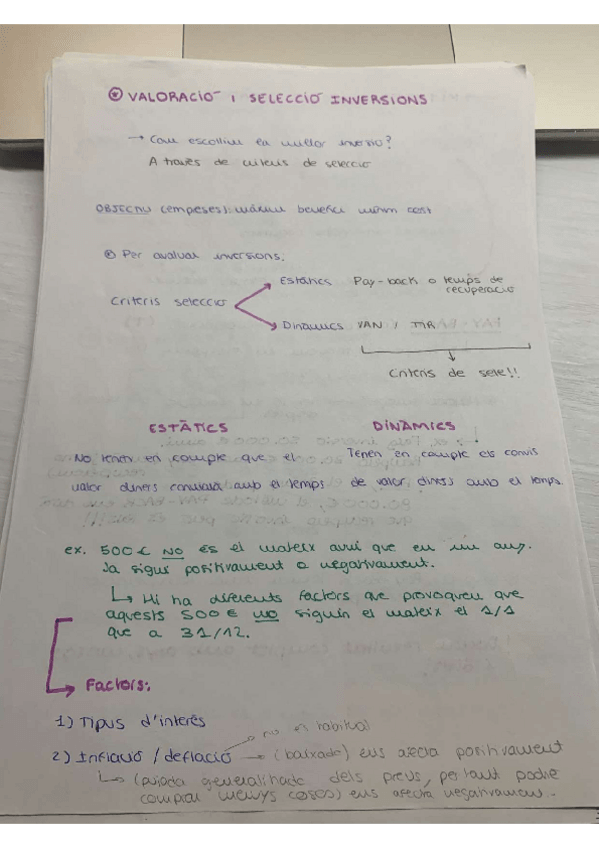 ⊛ VALORACIÓ I SELECCIÓ INVERSIONS
→ Com escollim la millor inversió?
A través de criteris de selecció
OBJECTIU (empeses): màxim benefici mínim cost
⊛ Per avaluar inversions.
Estàtics Pay-back o temps de
recuperació
Criteris selecció
Dinàmics VAN i TIR
Criteris de sele!!
ESTÀTICS DINÀMICS
No tenen en compte que el Tenen en compte els canvis
valor diners canviarà amb el temps de valor diners amb el temps.
ex. 500€ NO és el mateix avui que en un any.
Ja sigui positivament o negativament.
↳ Hi ha diferents factors que provoquen que
aquests 500€ no siguin el mateix el 1/1
que a 31/12.
Factors:
1) Tipus d'interès
no és habitual
2) Inflació / deflació → (baixada) ens afecta positivament
↳ (pujada generalitzada dels preus, per tant podré
comprar menys coses) ens afecta negativament.